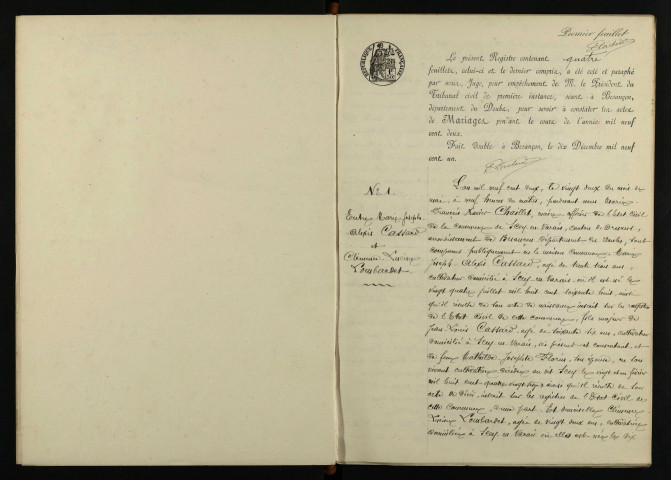 Premier feuillet
RÉPUBLIQUE FRANÇAISE
Le présent Registre contenant quatre
feuillets, celui-ci et le dernier compris, a été coté et paraphé
par nous, Juge, pour empêchement de M. le Président du
Tribunal civil de première instance, séant à Besançon,
département du Doubs, pour servir à constater les actes
de Mariages pendant le cours de l'année mil neuf
cent deux.
Fait double à Besançon, le dix Décembre mil neuf
cent un.
No 1.
Entre Marie Joseph
Alexis Cassard
et
Clémence Lucine
Lombardet
L'an mil neuf cent deux, le vingt deux du mois de
à neuf heures du matin, pardevant nous
François Xavier Chaillet, maire officier de l'Etat Civil
de la commune de Scey en Varais, canton de
arrondissement de Besançon département du Doubs, sont
comparus publiquement en la maison commune
Joseph Alexis Cassard, âgé de trente trois ans,
cultivateur domicilié à Scey en Varais, où il est né le
vingt quatre juillet mil huit cent soixante huit,
qu'il résulte de son acte de naissance inscrit sur les registres
de l'Etat Civil de cette commune, fils majeur de
Jean Louis Cassard, âgé de soixante six ans, cultivateur
domicilié à Scey en Varais, ici présent et consentant, et
de feue Mathilde Josephte son épouse, en son
vivant cultivatrice décédée au dit Scey le vingt et un février
mil huit cent quatre vingt ainsi qu'il résulte de son
acte de décès, inscrit sur les registres de l'Etat Civil de
cette commune, d'une part. Et demoiselle Clémence
Lucine Lombardet, âgée de vingt deux ans, cultivatrice
domiciliée à Scey en Varais où elle est née le dix